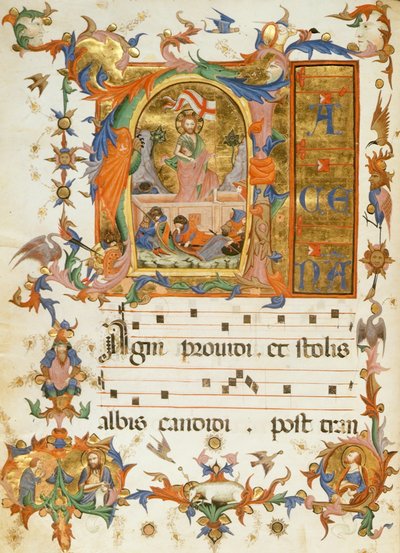 A
CE
NA
Agni prouidi . et stolis
albis candidi . post tran